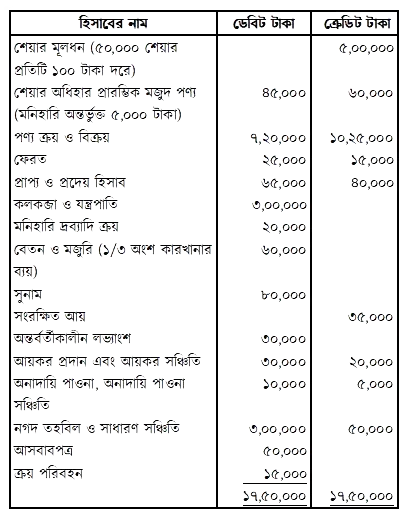 হিসাবের নাম ডেবিট টাকা ক্রেডিট টাকা
শেয়ার মূলধন (৫০,০০০ শেয়ার ৫,০০,০০০
প্রতিটি ১০০ টাকা দরে)
শেয়ার অধিহার প্রারম্ভিক মজুদ পণ্য ৪৫,০০০ ৬০,০০০
(মনিহারি অন্তর্ভুক্ত ৫,০০০ টাকা)
পণ্য ক্রয় ও বিক্রয় ৭,২০,০০০ ১০,২৫,০০০
ফেরত ২৫,০০০ ১৫,০০০
প্রাপ্য ও প্রদেয় হিসাব ৬৫,০০০ ৪০,০০০
কলকব্জা ও যন্ত্রপাতি ৩,০০,০০০
মনিহারি দ্রব্যাদি ক্রয় ২০,০০০
বেতন ও মজুরি (১/৩ অংশ কারখানার ৬০,০০০
ব্যয়)
সুনাম ৮০,০০০
সংরক্ষিত আয় ৩৫,০০০
অন্তর্বর্তীকালীন লভ্যাংশ ৩০,০০০
আয়কর প্রদান এবং আয়কর সঞ্চিতি ৩০,০০০ ২০,০০০
অনাদায়ি পাওনা, অনাদায়ি পাওনা ১০,০০০ ৫,০০০
সঞ্চিতি
নগদ তহবিল ও সাধারণ সঞ্চিতি ৩,০০,০০০ ৫০,০০০
আসবাবপত্র ৫০,০০০
ক্রয় পরিবহন ১৫,০০০
১৭,৫০,০০০ ১৭,৫০,০০০